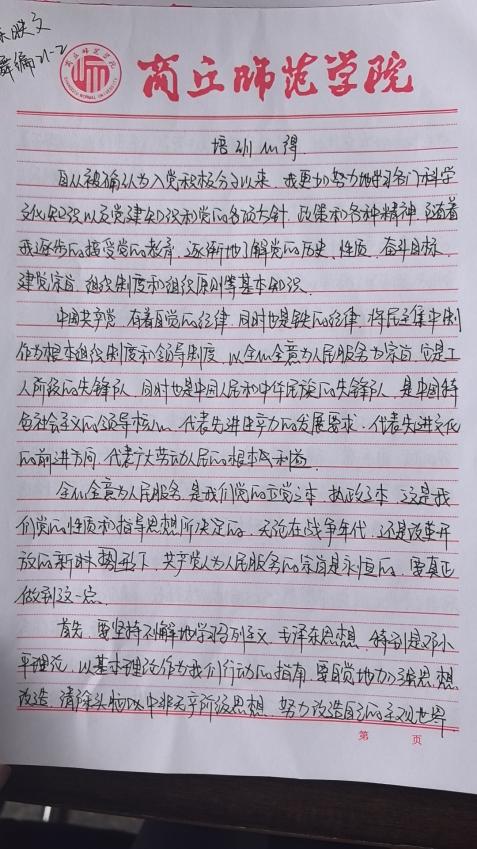 舞编21-2
商丘师范学院
培训心得
自从被确认为入党积极分子以来，我更加努力地学习各门科学
文化知识以及党建知识和党的各项方针、政策和各种精神，随着
我逐步的接受党的教育，逐渐地了解党的历史、性质、奋斗目标、
建党宗旨、组织制度和组织原则等基本知识。
中国共产党，有着自觉的纪律，同时也是铁的纪律，将民主集中制
作为根本组织制度和领导制度，以全心全意为人民服务为宗旨，它是工
人阶级的先锋队，同时也是中国人民和中华民族的先锋队，是中国特
色社会主义的领导核心，代表先进生产力的发展要求，代表先进文化
的前进方向，代表广大劳动人民的根本利益。
全心全意为人民服务，是我们党的立党之本，执政之本，这是我
们党的性质和指导思想所决定的，无论在战争年代，还是改革开
放的新时势形下，共产党人为人民服务的宗旨是永恒的，要真正
做到这一点。
首先，要坚持不懈地学习马列主义、毛泽东思想，特别是邓小
平理论，以基本理论作为我们行动的指南，要自觉地加强思想
改造，清除头脑中非无产阶级思想，努力改造自己的主观世界
第 页